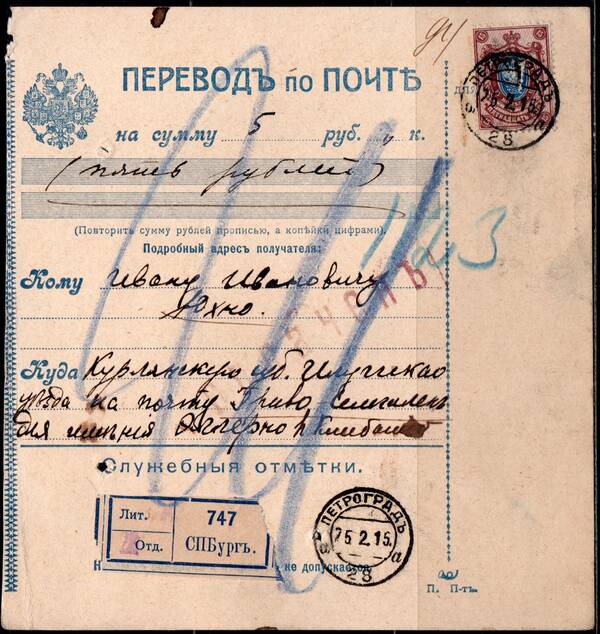 ПЕРЕВОДЪ по ПОЧТѢ
на сумму 5 руб. к.
(пять рублей)
(Повторить сумму рублей прописью, а копѣйки цифрами).
Подробный адресъ получателя:
Кому Ивану Ивановичу
Юхно.
Куда Курлянскую губ.
уѣзда на почту Грива
для имѣнія
Служебныя отмѣтки.
Лит. 747
Отд. СПБургъ.
не допускается.
ПЕТРОГРАДЪ
25.2.15.
28
П. П-тъ.
ПЕТРОГРАДЪ
2.15.
28
123